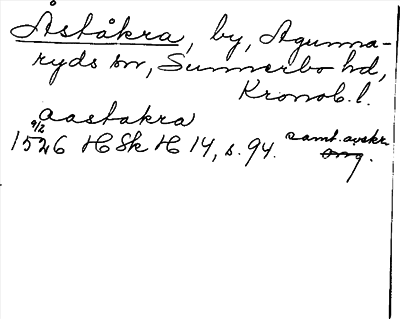 Åståkra, by, Agunna-
ryds sn, Sunnerbo hd,
Kronob. l.
aastakra
9/2
1526 HSk H 14, s. 94. samt. avskr.
orig.